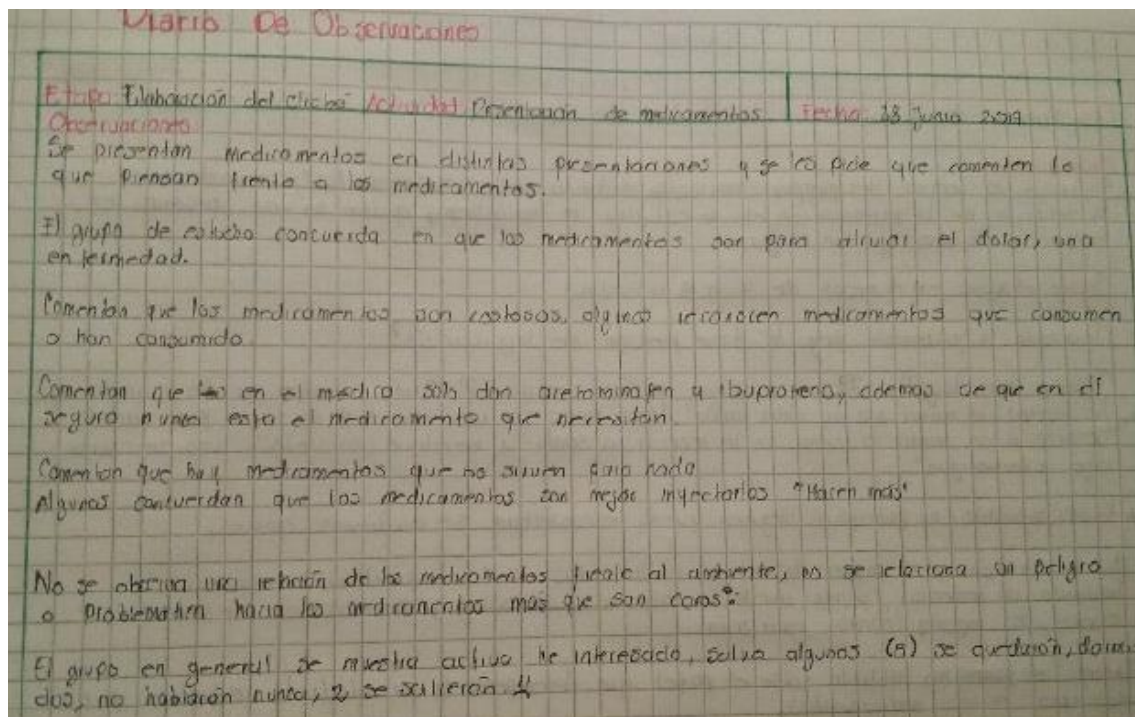 Diario De Observaciones
Etapa Elaboración del cliché Actividad Presentación de medicamentos Fecha 18 Junio 2.019
Observaciones
Se presentan medicamentos en distintas presentaciones y se les pide que comenten lo
que piensan frente a los medicamentos.
El grupo de estudio concuerda en que los medicamentos son para aliviar el dolor, una
enfermedad.
Comentan que los medicamentos son costosos, algunos reconocen medicamentos que consumen
o han consumido
Comentan que en el médico solo dan acetominofen y ibuprofeno, ademas de que en el
seguro nunca esta el medicamento que necesitan.
Comentan que hay medicamentos que no sirven para nada
Algunos concuerdan que los medicamentos son mejor inyectarlos "Hacen más"
No se observa una relación de los medicamentos frente al ambiente, no se relaciona un peligro
o problematica hacia los medicamentos mas que son caros
El grupo en general se muestra activo he interesado, salvo algunos (5) se quedarón, dormi
dos, no hablaron nunca, 2 se salierón